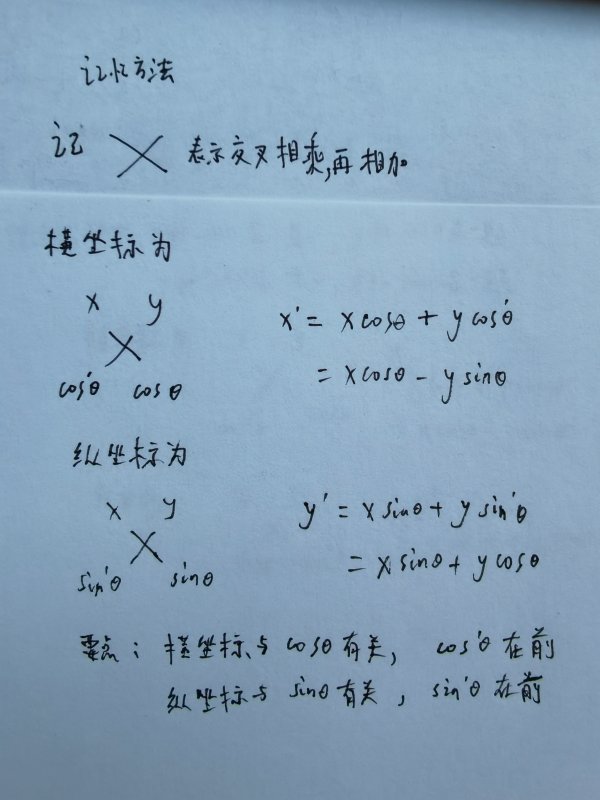 记忆方法
记 ╳ 表示交叉相乘,再相加
横坐标为
x y
╳
cos'θ cosθ
x' = xcosθ + ycos'θ
= xcosθ - ysinθ
纵坐标为
x y
╳
sin'θ sinθ
y' = xsinθ + ysin'θ
= xsinθ + ycosθ
要点：横坐标与cosθ有关， cos'θ在前
纵坐标与sinθ有关，sin'θ在前